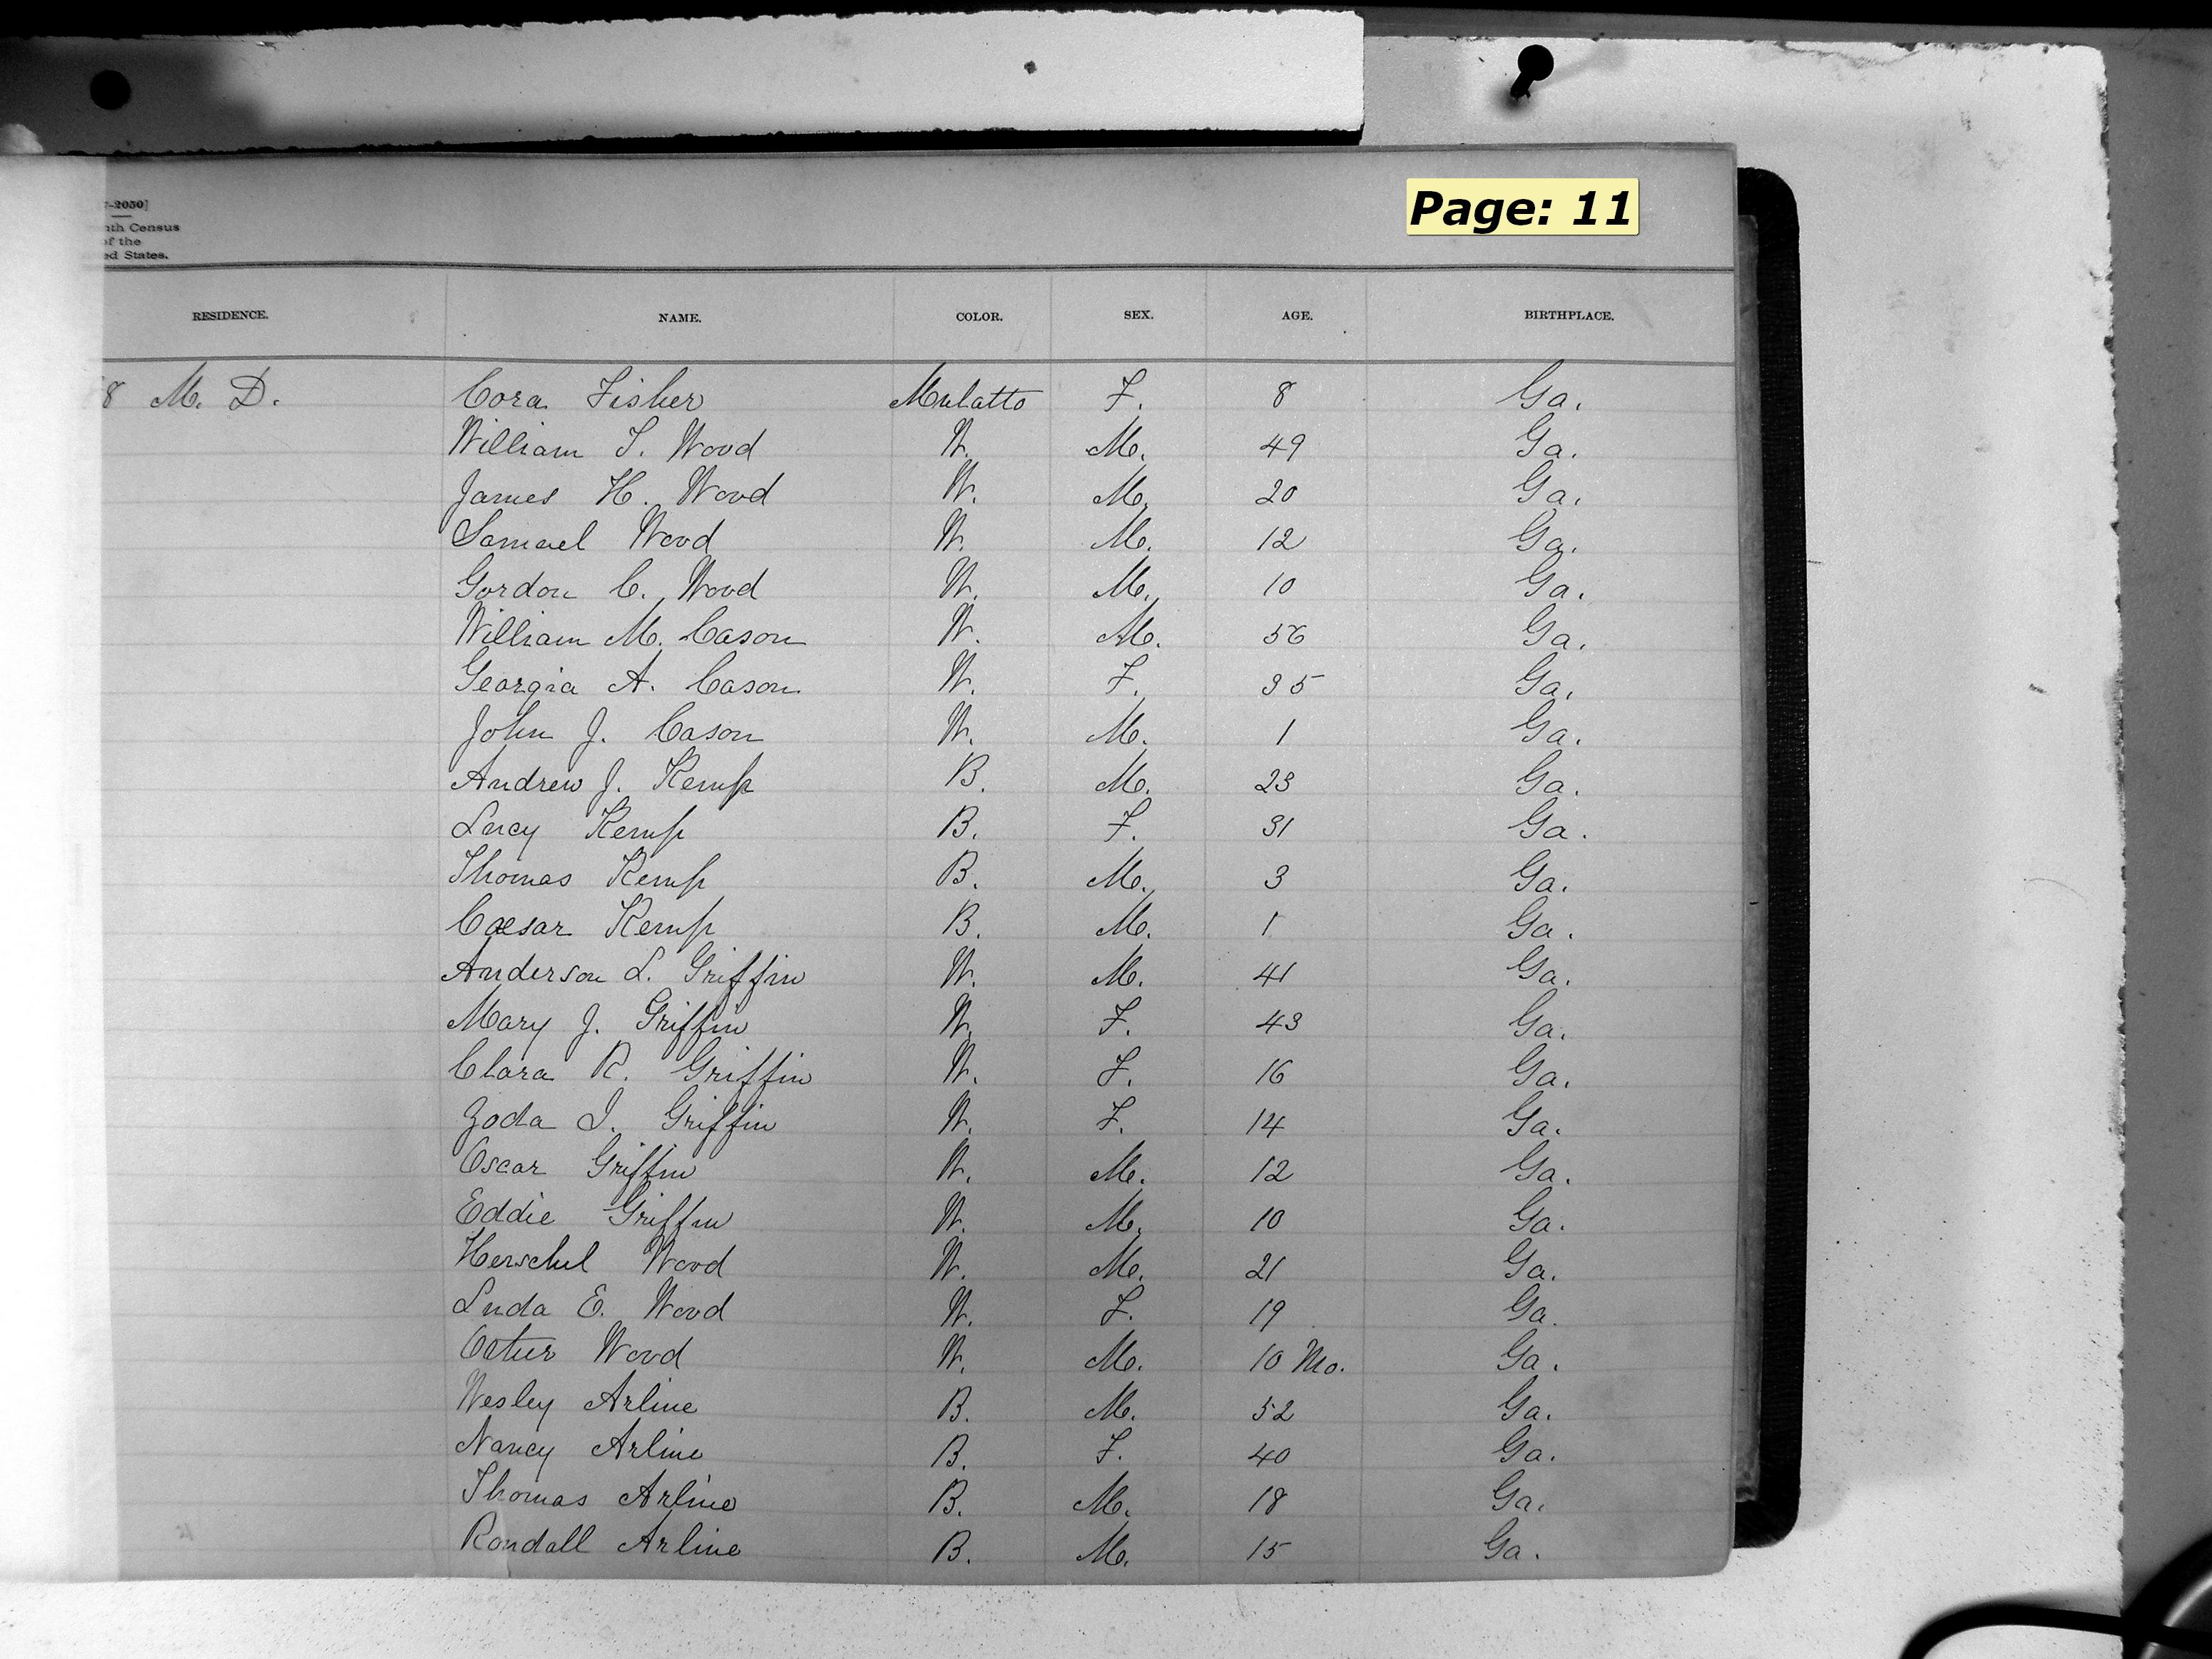 Page: 11
-2050]
nth Census
of the
ed States.
RESIDENCE. NAME. COLOR. SEX. AGE. BIRTHPLACE.
8 M. D. Cora Fisher Mulatto F. 8 Ga.
William T. Wood W. M. 49 Ga.
James H. Wood W. M. 20 Ga.
Samuel Wood W. M. 12 Ga.
Gordon C. Wood W. M. 10 Ga.
William M. Cason W. M. 56 Ga.
Georgia A. Cason W. F. 35 Ga.
John J. Cason W. M. 1 Ga.
Andrew J. Kemp B. M. 23 Ga.
Lucy Kemp B. F. 31 Ga.
Thomas Kemp B. M. 3 Ga.
Cæsar Kemp B. M. 1 Ga.
Anderson L. Griffin W. M. 41 Ga.
Mary J. Griffin W. F. 43 Ga.
Clara R. Griffin W. F. 16 Ga.
Zoda I. Griffin W. F. 14 Ga.
Oscar Griffin W. M. 12 Ga.
Eddie Griffin W. M. 10 Ga.
Herschel Wood W. M. 21 Ga.
Luda E. Wood W. F. 19 Ga.
Wood W. M. 10 Mo. Ga.
Wesley Arline B. M. 52 Ga.
Nancy Arline B. F. 40 Ga.
Thomas Arline B. M. 18 Ga.
Randall Arline B. M. 15 Ga.